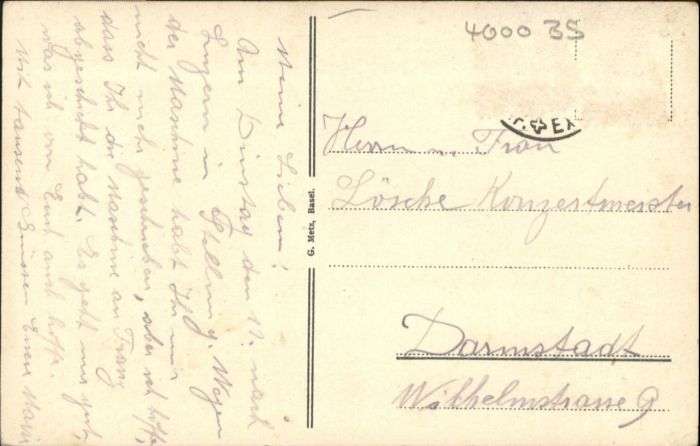 Meine Lieben!
Am Dinstag den 11. nach
Luzern in Stellung. Wegen
der Maschine habt Ihr mir
nicht mehr geschrieben, aber ich hoffe,
dass Ihr die Maschine an Franz
abgeschickt habt. Es geht mir gut,
was ich von Euch auch hoffe.
Mit tausend Grüssen Euer
G. Metz, Basel.
4000 BS
Herrn u. Frau
Lösche Konzertmeister
Darmstadt
Wilhelmstrasse 9